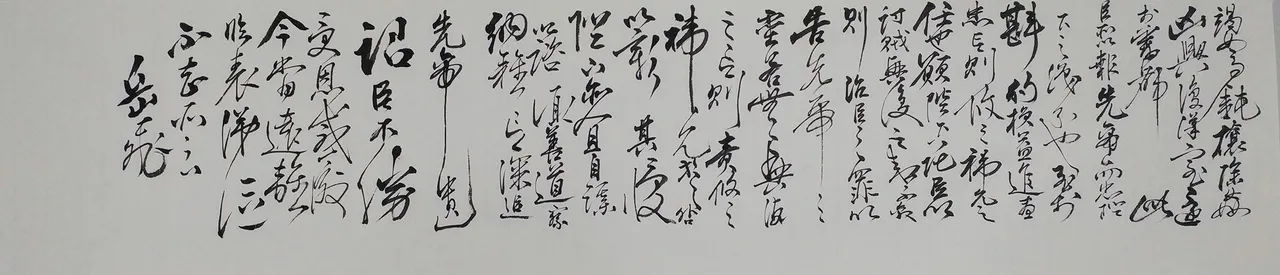 竭駑鈍攘除姦
凶興復漢室還
於舊都此
臣所以報先帝而忠陛
下之職分也至於
斟酌損益進盡
忠言則攸之禕允之
任也願陛下託臣以
討賊興復之效不效
則治臣之罪以
告先帝之
靈若無興德
之言則責攸之
禕允等咎
以彰其慢
陛下亦宜自謀
以諮諏善道察
納雅言深追
先帝遺
詔臣不勝
受恩感激
今當遠離
臨表涕泣
不知所云
岳飛